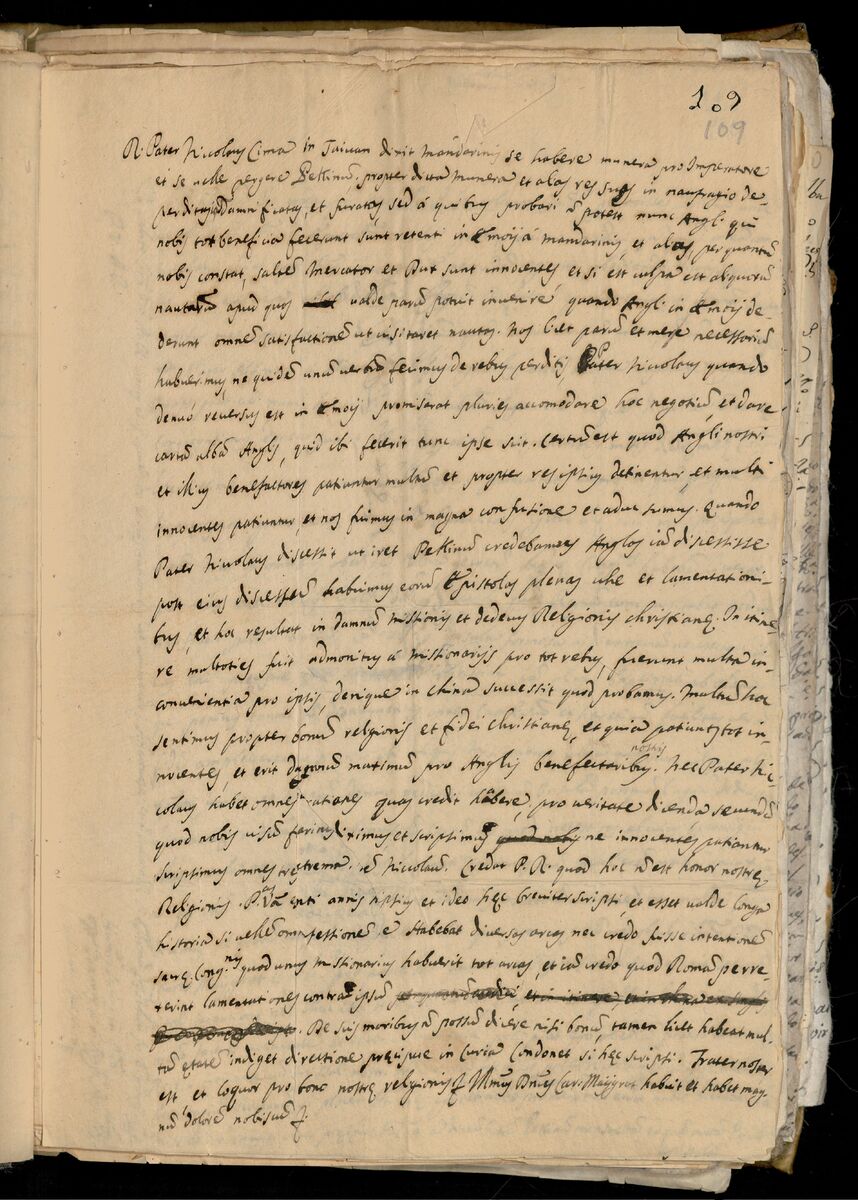 109
109
R. Pater Nicolaus Cima in Taiuan dixit Mandarinis se habere munera pro Imperatore
et se uelle pergere Pekinum, propter dicta munera et alias res suas in naufragio de-
perditas, damnificatas, et furatas, sed á quibus probari non potest nunc Angli qui
nobis tot beneficia fecerunt sunt retenti in Emoij á mandarinis, et alias, per quantum
nobis constat, saltem Mercator et Dux sunt innocentes et si est culpa est aliquorum
nautarum apud quos valde parum potuit inuenire, quando Angli in Emoij de-
derunt omnem satisfactionem ut uisitaret nautas. Nos licet parum et mere necessarium
habuerimus, ne quidem unum uerbum fecimus de rebus perditis Pater Nicolaus quando
denuó reuersus est in Emoij promiserat pluries accomodare hoc negotium, et dare
cartam albam Anglis, quid ibi fecerit tunc ipse scit. Certum est quod Angli nostri
et illius benefactores patiuntur multum et propter res ipsius detinentur, et multi
innocentes patiuntur, et nos fuimus in magna confusione et adhuc sumus. Quando
Pater Nicolaus discessit ut iret Pekinum credebamus Anglos iam discessisse
post eius discessum habuimus eorum Epistolas plenas uhe et lamentationi-
bus, et hoc resultat in damnum Missionis et dedecus Religionis christianę. In itine-
re multoties fuit admonitus á Missionarijs pro tot rebus, fuerunt multa in-
conuenientia pro ipsis, denique in China successit quod probamus. Multum hoc
sentimus propter bonum religionis et fidei christianę, et quia patiuntur tot in-
nocentes, et erit damnum maximum pro Anglis benefactoribus nostris. Nec Pater Ni-
colaus habet omnes rationes quas credit habere, pro ueritate dicenda secundum
quod nobis uisum diximus et scripsimus ne innocentes patiantur
scripsimus omnes Nicolaum. Credat P. R. quod hoc non est honor nostrę
Religionis. annis ipsius et ideo hęc breuiter scripsi, et esset ualde longa
historia si uellem Habebat diuersas arcas nec credo fuisse intentionem
sacrę Cong.nis quod unus Missionarius habuerit tot arcas, et iam credo quod Romam perue-
nerint lamentationes contra ipsum
De suis moribus non possum dicere nisi bonum, tamen licet habeat mul-
tum ętatem indiget directione pręcipue in Curia Condonet si hęc scripsi. Frater noster
est et loquor pro bono nostrę religionis Illmus Dnus Car. Maigrot habuit et habet mag-
num dolorem nobiscum